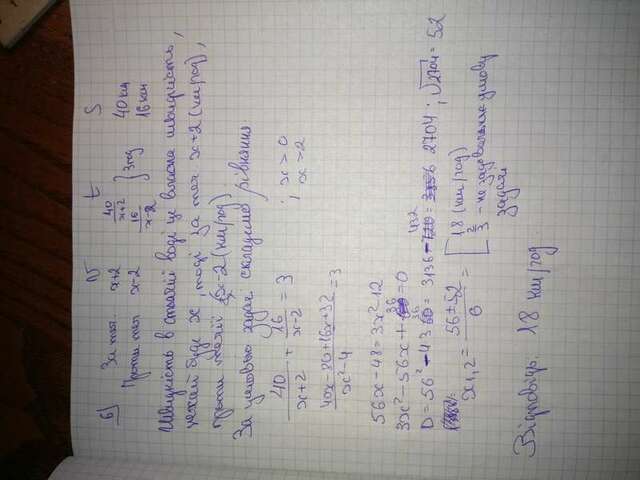 6) V t S
За теч. x+2 40/x+2 } 3 год 40 км
Проти теч x-2 16/x-2 16 км
Швидкість в стоячій воді це власна швидкість,
нехай буде x, тоді за теч x+2 (км/год),
проти течії x-2 (км/год)
За умовою задачі складемо рівняння
40/x+2 + 16/x-2 = 3 ; x > 0 ; x > 2
40x-80+16x+32/x²-4 = 3
56x-48=3x²-12
3x²-56x+36=0
D = 56²-4·3·36 = 3136-432= 2704 ; √2704 = 52
x1,2 = 56±52/6 = [ 18 (км/год)
2/3 - не задовольняє умову
задачі
Відповідь. 18 км/год